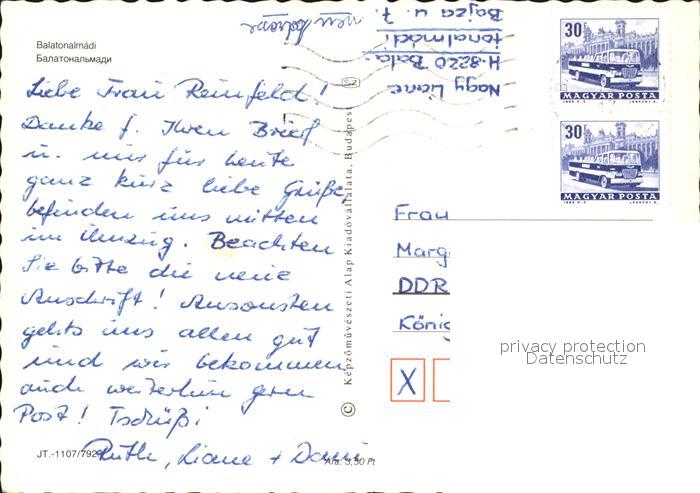 Balatonalmádi
Балатональмади
Liebe Frau Reinfeld!
Danke f. Ihren Brief
u. nur für heute
ganz kurz liebe Grüße
befinden uns mitten
im Umzug. Beachten
Sie bitte die neue
Anschrift! Ansonsten
gehts uns allen gut
und wir bekommen
auch weiterhin gern
Post! Tschüßi
Ruth, Liane +
JT.-1107/792
Ára: 3,50 Ft
Nagy Liane
H-8220 Bala-
tonalmádi
Bajza u. 7.
© Képzőművészeti Alap Kiadóvállalata, Budapest
30f
MAGYAR POSTA
30f
MAGYAR POSTA
Frau
Marg
DDR
König
X
privacy protection
Datenschutz